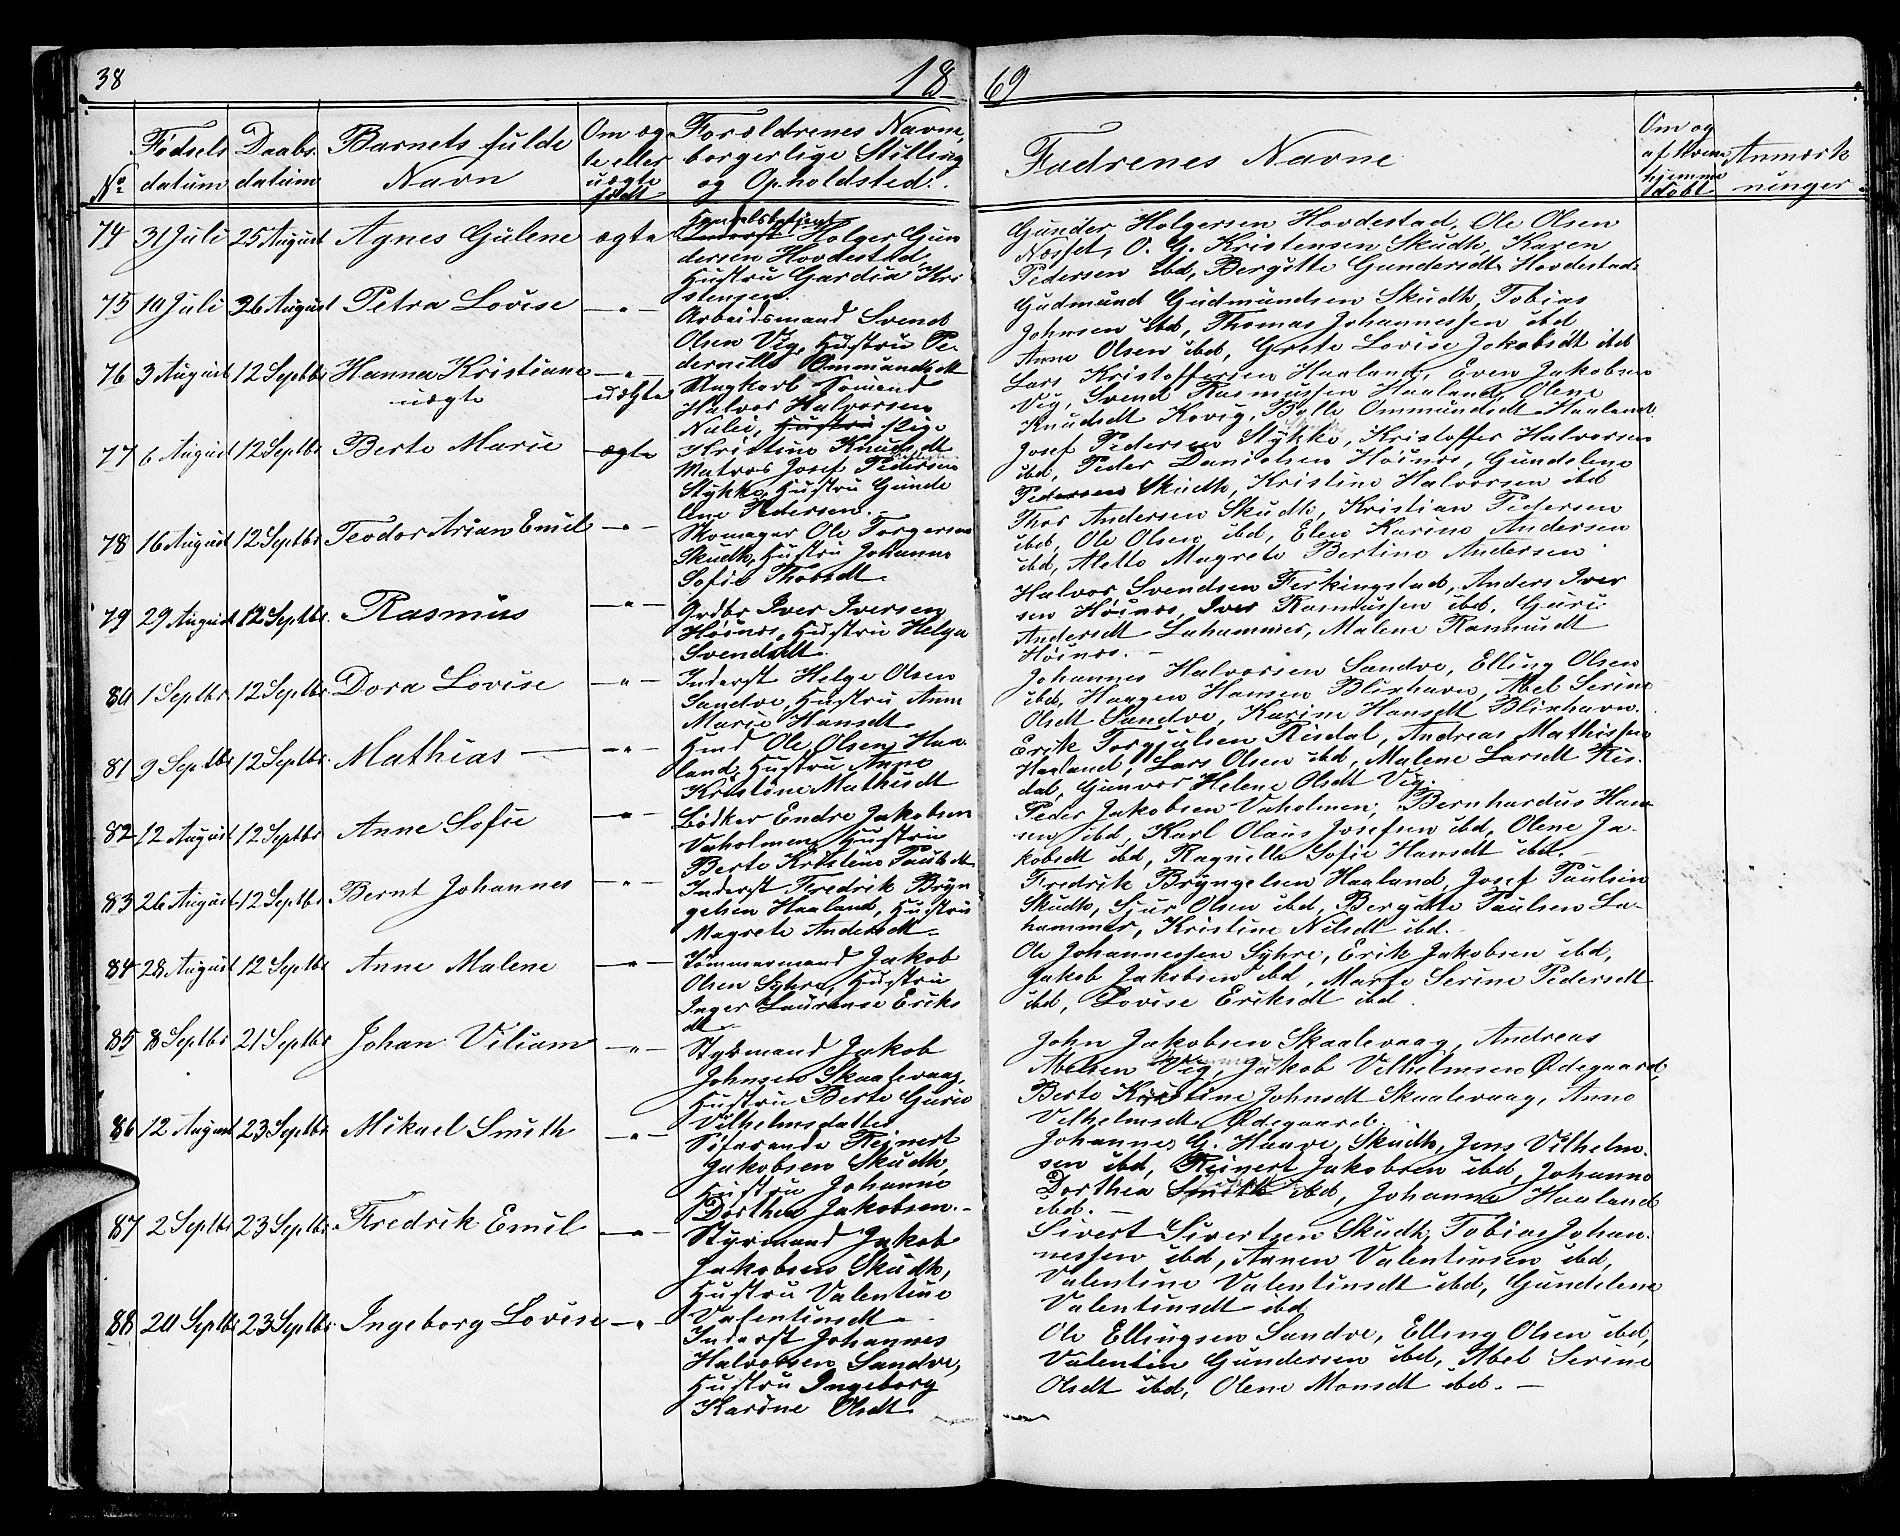 38
18
69
No.
Fødsels datum
Daabs datum
Barnets fulde Navn
Om ægte eller uægte født
Forældrenes Navne, borgerlige Stilling og Opholdsted.
Fadrenes Navne
Om og af Hvem hjemme døbt
Anmærkninger
74 31 Juli 25 August Agnes Gulene ægte
Handelsbetjent
Inderst Holger Gun
dersen Hovdestad
Hustru Gardia Kri
stensen.
Gunder Holgersen Hovdestad, Ole Olsen
Næsset, O. G. Kristensen Skudh, Karen
Pedersen ibd, Bergitte Gundersdt Hovdestad
75 10 Juli 26 August Petra Lovise — " —
Arbeidsmand Svend
Olsen Vig, Hustru Pe-
dernille Ommundsdt
Gudmund Gudmundsen Skudh, Tobias
Johnsen ibd, Thomas Johannessen ibd,
Anne Olsen ibd, Grete Lovise Jakobsdt ibd
76 3 August 12 Septbr Hanna Kristiane — " —
uægte
uægte
Ungkarl Sømand
Halvor Halvorsen
Hustru Pige
Kristine Knudsdt
Lars Kristoffersen Haaland, Even Jakobsen
Vig, Svend Rasmussen Haaland, Olene
Knudsdt Kovig, Bolle Ommundsdt Haaland.
77 6 August 12 Septbr Berte Marie ægte
Matros Josef Pedersen
Stykke, Hustru Gunde
lene Pedersen.
Josef Pedersen Stykke, Kristoffer Halvorsen
ibd, Peder Danielsen Høines, Gundelene
Pedersen Skudh, Kristine Halvorsen ibd
78 16 August 12 Septbr Teodor Arian Emil — " —
Skomager Ole Torgersen
Skudh, Hustru Johanne
Sofie Thorsdt.
Thor Andersen Skudh, Kristian Pedersen
ibd, Ole Olsen ibd, Elen Karine Andersen
ibd, Aletta Magrete Bertine Andersen
79 29 August 12 Septbr. Rasmus — " —
Grdbr Iver Iversen
Høines, Hustru Helga
Svendsdt.
Halvor Svendsen Ferkingstad, Anders Iver
sen Høines, Iver Rasmussen ibd, Guri
Andersdt Lahammer, Malene Rasmusdt
Høines. —
80 1 Septbr. 12 Septbr Dora Lovise — " —
Inderst Helge Olsen
Sandve, Hustru Anne
Marie Hansdt.
Johannes Halvorsen Sandve, Elling Olsen
ibd, Haagen Hansen Blixhavn, Abel Serine
Olsdt Sandve, Karine Hansdt Blixhavn.
81 9 Septbr 12 Septbr. Mathias — — " —
Hmd Ole Olsen Haa
land, Hustru Anne
Kristine Mathisdt
Erik Torgjulsen Risdal, Andreas Mathissen
Haaland, Lars Olsen ibd, Malene Larsdt Ris-
dal, Gunvor Helene Olsdt Vig.
82 12 August 12 Septbr Anne Sofie — " —
Bødker Endre Jakobsen
Vaholmen, Hustru
Berte Kristine Paulsdt
Peder Jakobsen Vaholmen, Bernhardus Han
sen ibd, Karl Olaus Josefsen ibd, Olene Ja-
kobsdt ibd, Ragnilla Sofie Hansdt ibd. —
83 26 August 12 Septbr Bernt Johannes — " —
Inderst Fredrik Bryn
gelsen Haaland, Hustru
Magrete Andersdt.
Fredrik Bryngelsen Haaland, Josef Paulsen
Skudh, Sjur Olsen ibd, Bergitte Paulsen La-
hammer, Kristine Nilsdt ibd.
84 28 August 12 Septbr Anne Malene — " —
Tømmermand Jakob
Olsen Syhre, Hustru
Inger Laurense Eriks
dt.
Ole Johannessen Syhre, Erik Jakobsen ibd,
Jakob Jakobsen ibd, Marte Serine Pedersdt
ibd, Lovise Eriksdt ibd.
85 8 Septbr 21 Septbr Johan Viliam — " —
Styrmand Jakob
Johnsen Skaalevaag,
Hustru Berte Gurie
Vilhelmsdatter
John Jakobsen Skaalevaag, Andreas
Abelsen Vig, Jakob Vilhelmsen Ødegaard,
Berte Kristine Johnsdt Skaalevaag, Anne
Vilhelmsdt Ødegaard.
86 12 August 23 Septbr Mikael Smith — " —
Søfarende Reinert
Jakobsen Skudh,
Hustru Johanne
Dorthea Jakobsen. —
Johannes G. Haave, Skudh, Jens Vilhelm-
sen ibd, Reinert Jakobsen ibd, Johanne
Dorthea Smith ibd, Johanne Haaland
ibd. —
87 2 Septbr 23 Septbr. Fredrik Emil — " —
Styrmand Jakob
Jakobsen Skudh,
Hustru Valentine
Valentinsdt.
Sivert Sivertsen Skudh, Tobias Johan-
nessen ibd, Annen Valentinsen ibd,
Valentine Valentinsdt ibd, Gundelene
Valentinsdt ibd
88 20 Septbr 23 Septbr. Ingeborg Lovise — " —
Inderst Johannes
Halvorsen Sandve,
Hustru Ingeborg
Karine Olsdt.
Ole Ellingsen Sandve, Elling Olsen ibd,
Valentin Gundersen ibd, Abel Serine
Olsdt ibd, Olene Monsdt ibd. —